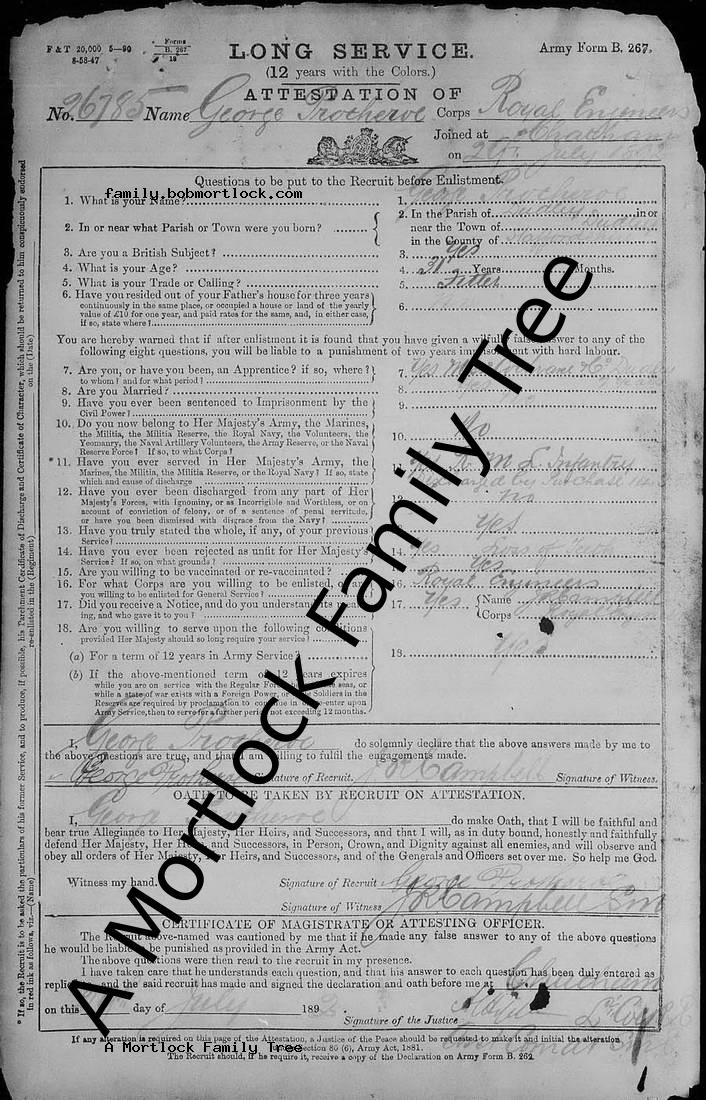 F & T 20,000 5—90
8-58-47
Forms
B. 267
LONG SERVICE.
Army Form B. 267.
(12 years with the Colors.)
ATTESTATION OF
No. 26785 Name George Trocherve Corps Royal Engineers
Joined at Chatham
on
family.bobmortlock.com
Questions to be put to the Recruit before Enlistment.
1. What is your Name?
1.
2. In or near what Parish or Town were you born?
2. In the Parish of Dudley in or
near the Town of Dudley
in the County of
3. Are you a British Subject?
3. Yes
4. What is your Age?
4. Years Months.
5. What is your Trade or Calling?
5. Fitter
6. Have you resided out of your Father's house for three years
continuously in the same place, or occupied a house or land of the yearly
value of £10 for one year, and paid rates for the same, and, in either case,
if so, state where?
6.
You are hereby warned that if after enlistment it is found that you have given a wilfully false answer to any of the
following eight questions, you will be liable to a punishment of two years imprisonment with hard labour.
7. Are you, or have you been, an Apprentice? if so, where?
to whom? and for what period?
7. Yes
8. Are you Married?
8.
9. Have you ever been sentenced to Imprisonment by the
Civil Power?
9.
10. Do you now belong to Her Majesty's Army, the Marines,
the Militia, the Militia Reserve, the Royal Navy, the Volunteers, the
Yeomanry, the Naval Artillery Volunteers, the Army Reserve, or the Naval
Reserve Force? If so, to what Corps?
10. No
*11. Have you ever served in Her Majesty's Army, the
Marines, the Militia, the Militia Reserve, or the Royal Navy? If so, state
which and cause of discharge
11. L Infantry
Discharged by Purchase
12. Have you ever been discharged from any part of Her
Majesty's Forces, with Ignominy, or as Incorrigible and Worthless, or on
account of conviction of felony, or of a sentence of penal servitude,
or have you been dismissed with disgrace from the Navy?
12. No
13. Have you truly stated the whole, if any, of your previous
Service?
Yes
14. Have you ever been rejected as unfit for Her Majesty's
Service? If so, on what grounds?
14. Yes loss of Teeth
15. Are you willing to be vaccinated or re-vaccinated?
Yes
16. For what Corps are you willing to be enlisted, or are
you willing to be enlisted for General Service?
16. Royal Engineers
17. Did you receive a Notice, and do you understand its meaning,
and who gave it to you?
17. Yes Name Campbell
Corps
18. Are you willing to serve upon the following conditions
provided Her Majesty should so long require your service?
(a) For a term of 12 years in Army Service?
18. Yes
(b) If the above-mentioned term of 12 years expires
while you are on service with the Regular Forces beyond the seas, or
while a state of war exists with a Foreign Power, or while Soldiers in the
Reserves are required by proclamation to continue in or re-enter upon
Army Service, then to serve for a further period not exceeding 12 months.
I, George Trocherve do solemnly declare that the above answers made by me to
the above questions are true, and that I am willing to fulfil the engagements made.
George Signature of Recruit. Campbell Signature of Witness.
OATH TO BE TAKEN BY RECRUIT ON ATTESTATION.
I, do make Oath, that I will be faithful and
bear true Allegiance to Her Majesty, Her Heirs, and Successors, and that I will, as in duty bound, honestly and faithfully
defend Her Majesty, Her Heirs, and Successors, in Person, Crown, and Dignity against all enemies, and will observe and
obey all orders of Her Majesty, Her Heirs, and Successors, and of the Generals and Officers set over me. So help me God.
Witness my hand. Signature of Recruit George
Signature of Witness Campbell
CERTIFICATE OF MAGISTRATE OR ATTESTING OFFICER.
The Recruit above-named was cautioned by me that if he made any false answer to any of the above questions
he would be liable to be punished as provided in the Army Act.
The above questions were then read to the recruit in my presence.
I have taken care that he understands each question, and that his answer to each question has been duly entered as
replied and the said recruit has made and signed the declaration and oath before me at Chatham
on this day of July 189
Signature of the Justice
If any alteration is required on this page of the Attestation, a Justice of the Peace should be requested to make it and initial the alteration
Section 80 (6), Army Act, 1881.
The Recruit should, if he require it, receive a copy of the Declaration on Army Form B. 262.
* If so, the Recruit is to be asked the particulars of his former Service, and to produce, if possible, his Parchment Certificate of Discharge and Certificate of Character, which should be returned to him conspicuously endorsed
in red ink as follows, viz.—(Name) re-enlisted in the (Regiment) on the (Date)
A Mortlock Family Tree
A Mortlock Family Tree